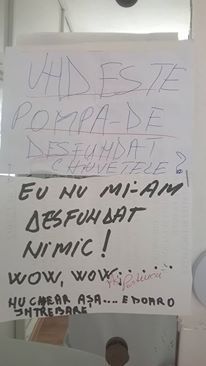 UHD ESTE
POMPA-DE
DESFUHDAT
CHIUVETELE?
EU NU MI-AM
DESFUHDAT
NIMIC!
WOW, WOW.....
HU CHEAR AȘA... EDOARD
IHTREBARE